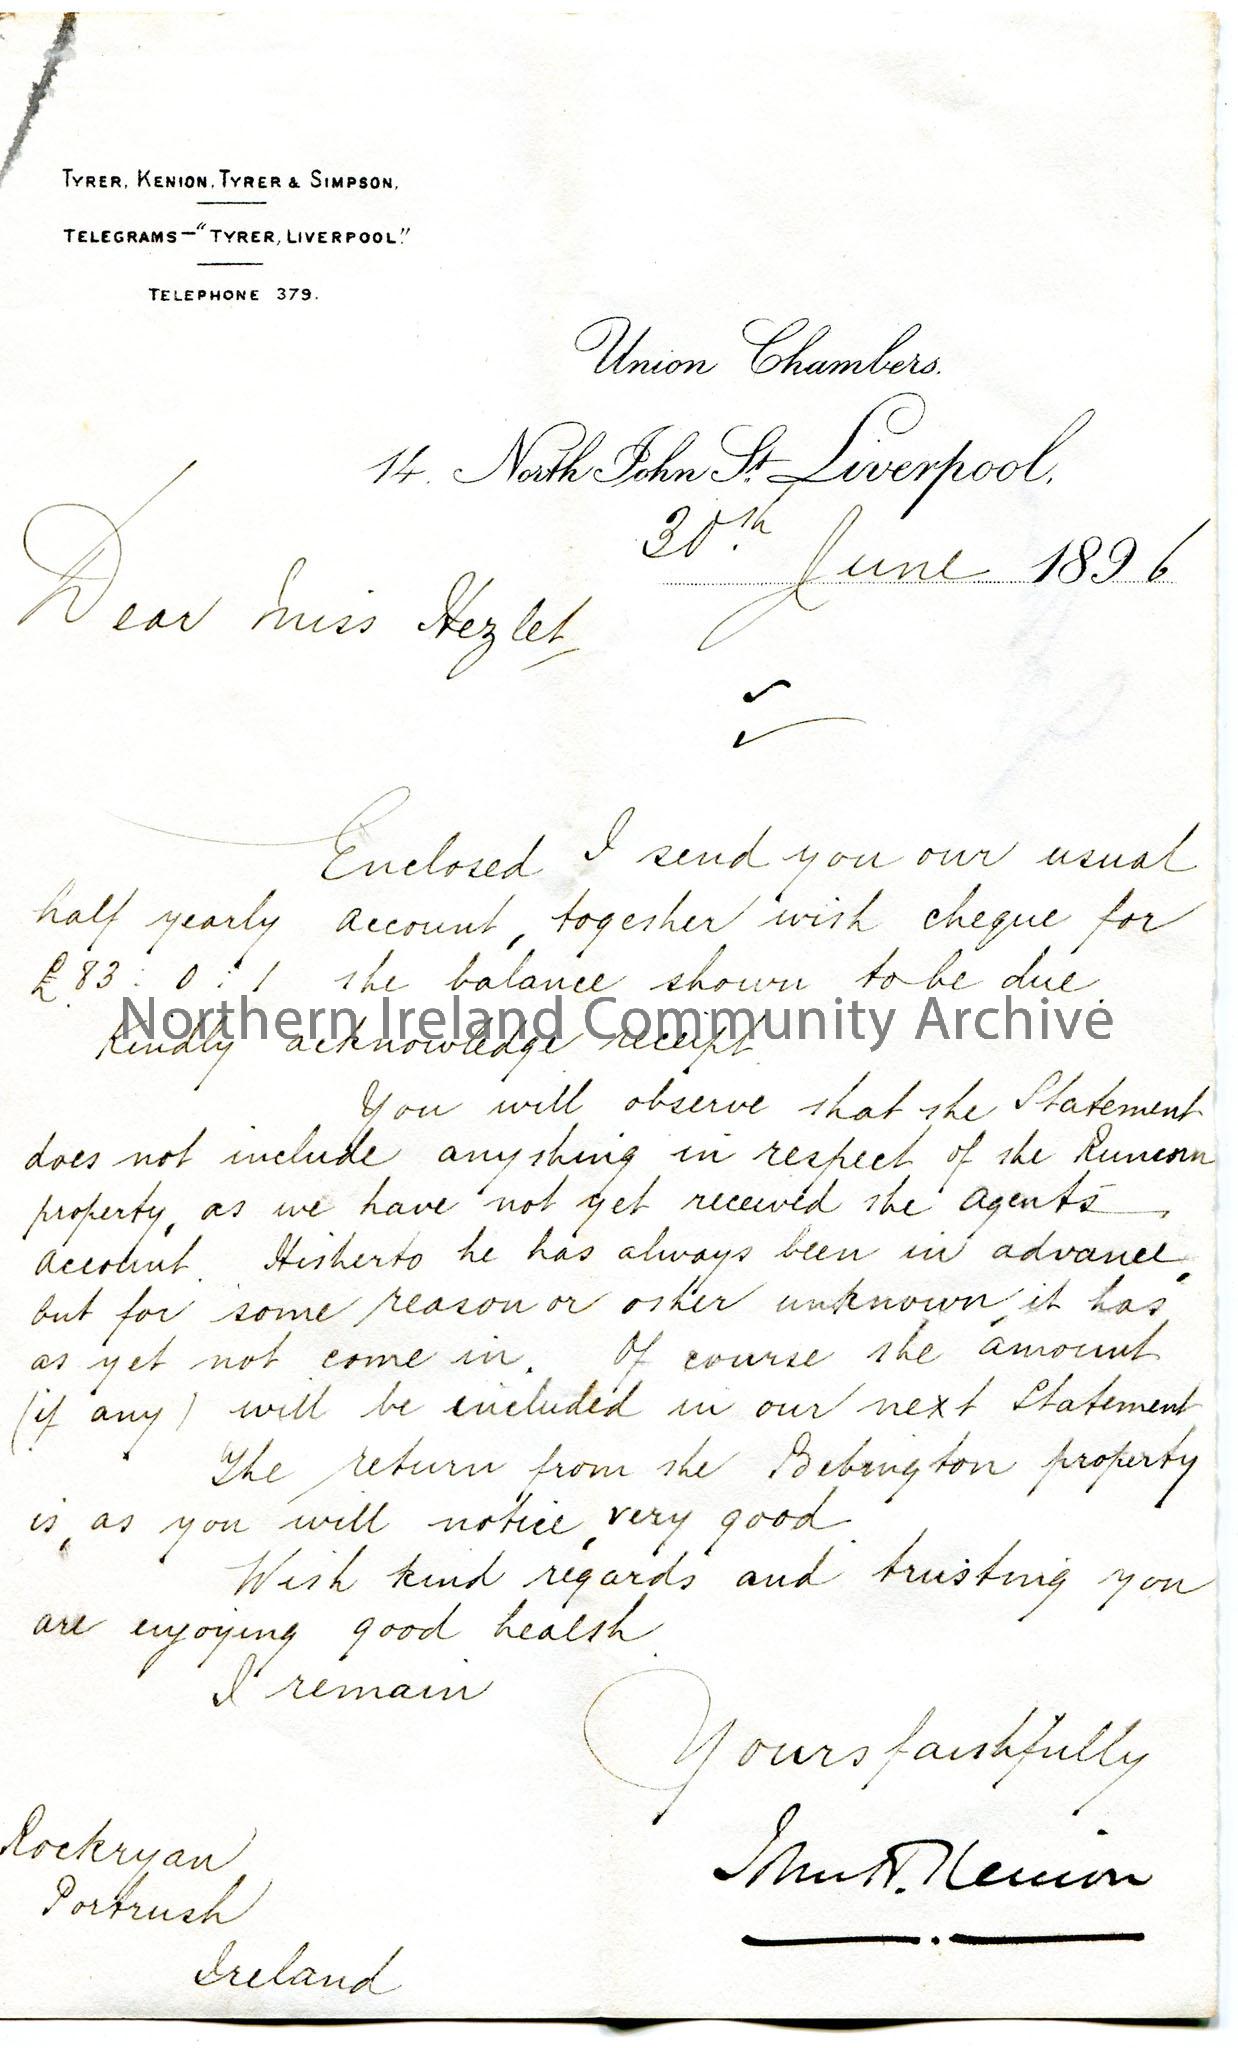 TYRER, KENION, TYRER & SIMPSON,
TELEGRAMS—"TYRER, LIVERPOOL."
TELEPHONE 379.
Union Chambers.
14. North John St. Liverpool,
30th June 1896
Dear Miss Hezlet
Enclosed I send you our usual
half yearly account, together with cheque for
£83 : 0 : 1 the balance shown to be due.
Northern Ireland Community Archive
Kindly acknowledge receipt.
You will observe that the Statement
does not include anything in respect of the Runcorn
property, as we have not yet received the agents
account. Hitherto he has always been in advance,
but for some reason or other unknown, it has
as yet not come in. Of course the amount
(if any) will be included in our next Statement
The return from the Bebington property
is, as you will notice, very good.
With kind regards and trusting you
are enjoying good health.
I remain
Yours faithfully
John . Kenion
Rockryan
Portrush
Ireland